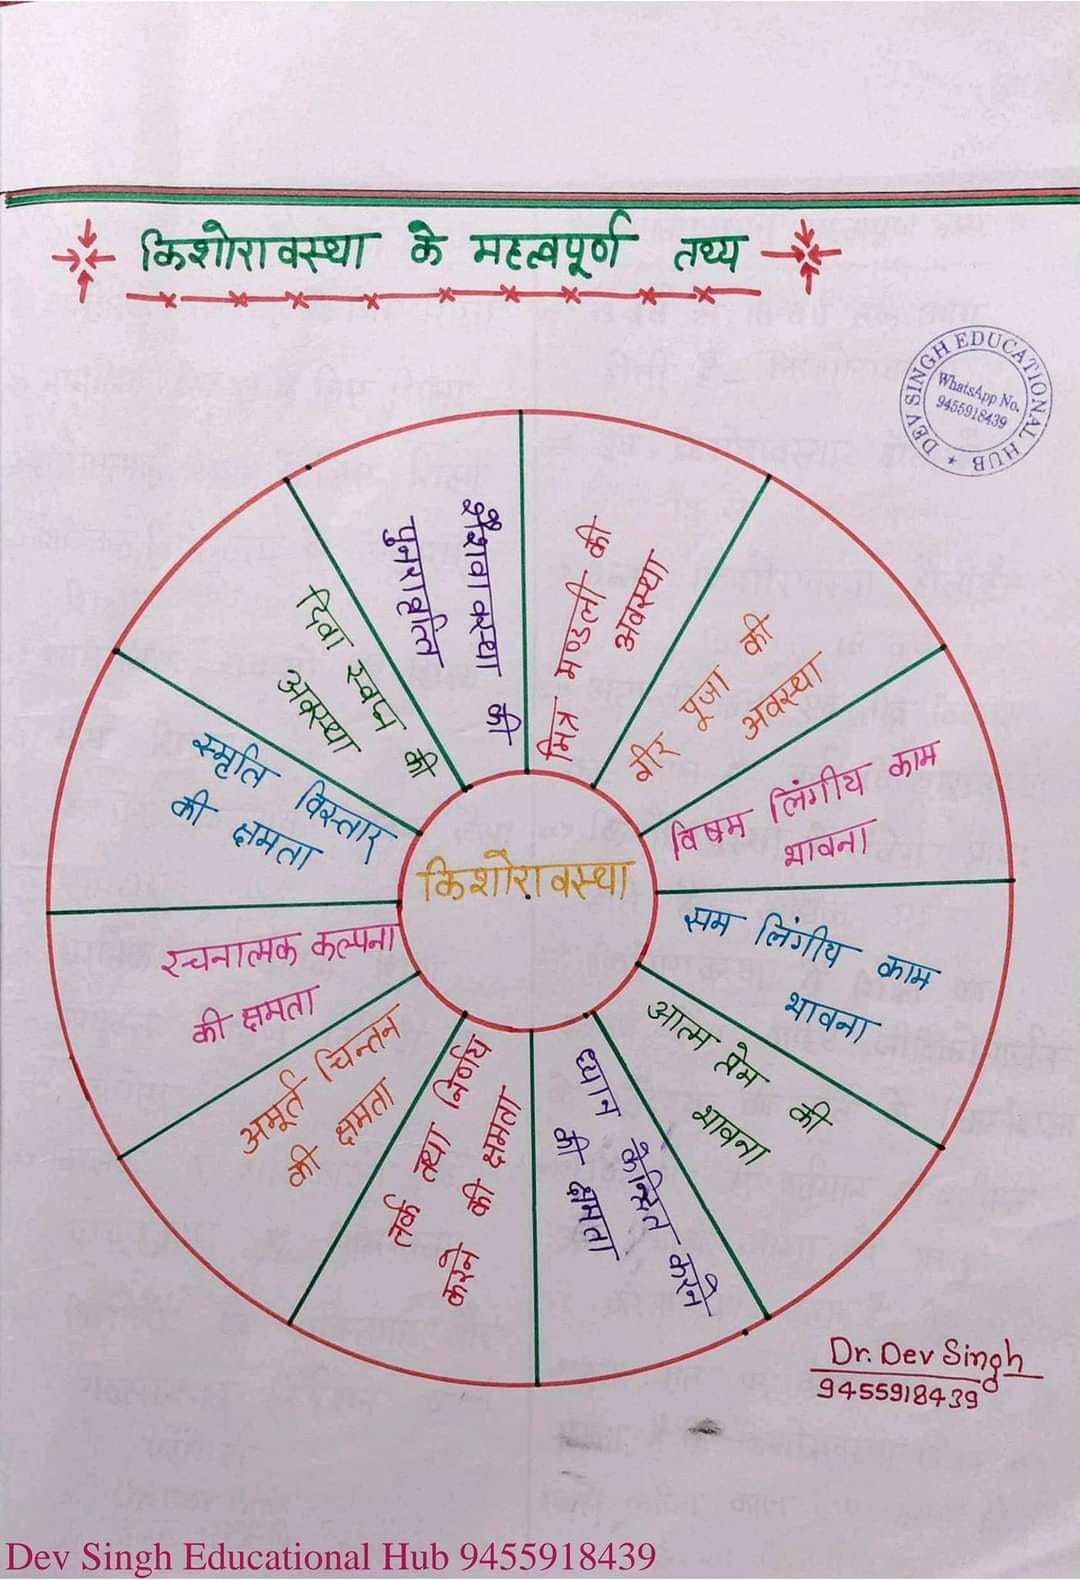 किशोरावस्था के महत्वपूर्ण तथ्य
DEV SINGH EDUCATIONAL HUB
WhatsApp No.
9455918439
मित्र मण्डली की
अवस्था
वीर पूजा की
अवस्था
विषम लिंगीय काम
भावना
सम लिंगीय काम
भावना
आत्म प्रेम की
भावना
ध्यान केन्द्रित करने
की क्षमता
तर्क तथा निर्णय
करने की क्षमता
अमूर्त चिन्तन
की क्षमता
रचनात्मक कल्पना
की क्षमता
स्मृति विस्तार
की क्षमता
दिवा स्वप्न की
अवस्था
शैशवावस्था की
पुनरावृत्ति
किशोरावस्था
Dr. Dev Singh
9455918439
Dev Singh Educational Hub 9455918439